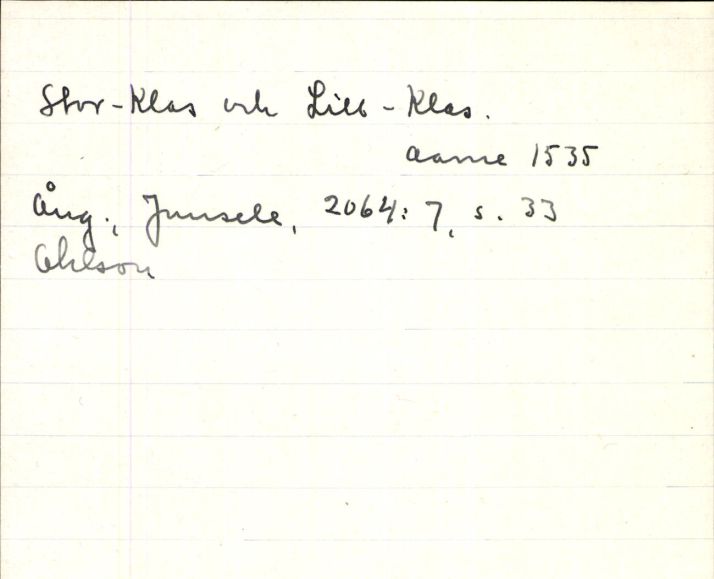 Stor-Klas och Lill-Klas.
Aarne 1535
Ång., Junsele, 2064: 7, s. 33
Ohlson